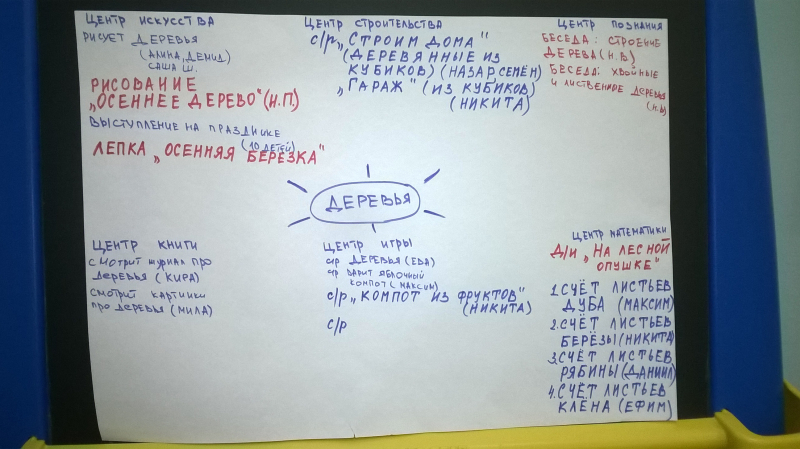 ЦЕНТР ИСКУССТВА
РИСУЕТ ДЕРЕВЬЯ
(АЛИНА, ДЕМИД)
САША Ш.
РИСОВАНИЕ
„ОСЕННЕЕ ДЕРЕВО" (Н.П.)
ВЫСТУПЛЕНИЕ НА ПРАЗДНИКЕ
(10 ДЕТЕЙ)
ЛЕПКА „ОСЕННЯЯ БЕРЁЗКА"
ЦЕНТР СТРОИТЕЛЬСТВА
С/Р „СТРОИМ ДОМА"
(ДЕРЕВЯННЫЕ ИЗ
КУБИКОВ) (НАЗАР, СЕМЁН)
„ГАРАЖ" (ИЗ КУБИКОВ)
(НИКИТА)
ЦЕНТР ПОЗНАНИЯ
БЕСЕДА: СТРОЕНИЕ
ДЕРЕВА (Н.В)
БЕСЕДА: ХВОЙНЫЕ
И ЛИСТВЕННОЕ ДЕРЕВЬЯ
(Н.В)
ДЕРЕВЬЯ
ЦЕНТР КНИГИ
СМОТРИТ ЖУРНАЛ ПРО
ДЕРЕВЬЯ (КИРА)
СМОТРИТ КАРТИНКИ
ПРО ДЕРЕВЬЯ (МИЛА)
ЦЕНТР ИГРЫ
С/Р ДЕРЕВЬЯ (ЕВА)
С/Р ВАРИТ ЯБЛОЧНЫЙ
КОМПОТ (МАКСИМ)
С/Р „КОМПОТ ИЗ ФРУКТОВ"
(НИКИТА)
С/Р
ЦЕНТР МАТЕМАТИКИ
Д/И „НА ЛЕСНОЙ
ОПУШКЕ"
1. СЧЁТ ЛИСТЬЕВ
ДУБА (МАКСИМ)
2. СЧЁТ ЛИСТЬЕВ
БЕРЁЗЫ (НИКИТА)
3. СЧЁТ ЛИСТЬЕВ
РЯБИНЫ (ДАНИИЛ)
4. СЧЁТ ЛИСТЬЕВ
КЛЁНА (ЕФИМ)